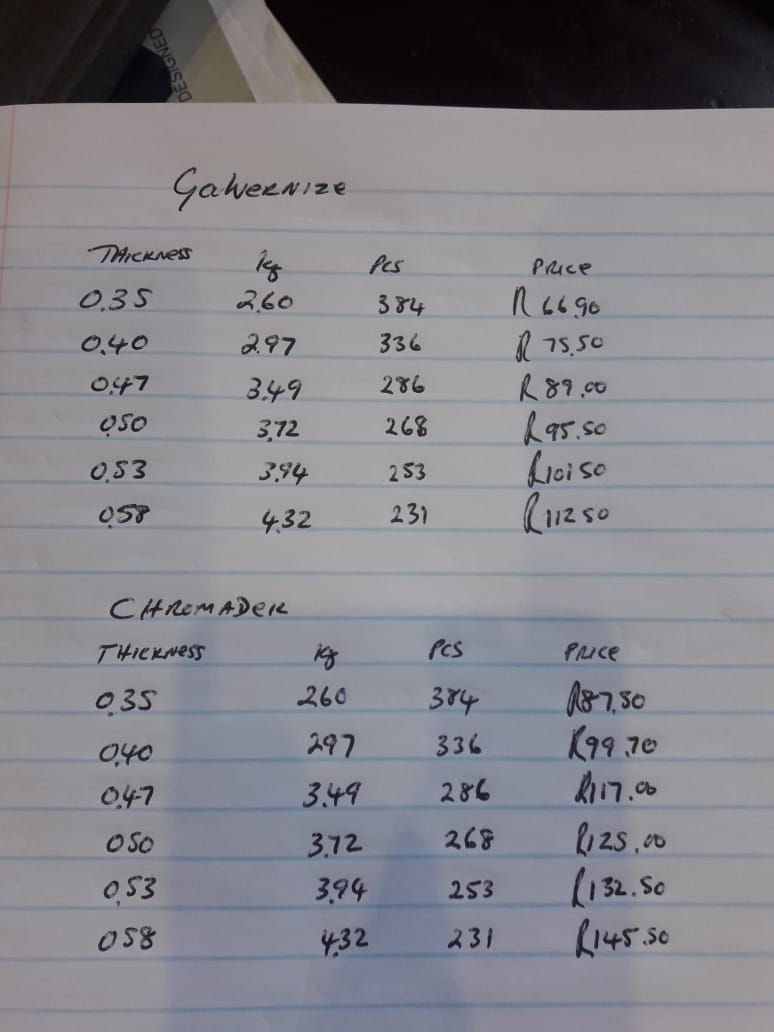 DESIGNED
Galvernize
Thickness kg Pcs Price
0.35 2.60 384 R 66.90
0.40 2.97 336 R 75.50
0.47 3.49 286 R 89.00
0.50 3.72 268 R95.50
0.53 3.94 253 R101 50
0.58 4.32 231 R112 50
CHROMADEK
THICKNESS kg Pcs Price
0.35 260 384 R87.50
0.40 297 336 R99.70
0.47 3.49 286 R117.00
050 3.72 268 R125.00
0.53 3.94 253 R132.50
058 4.32 231 R145.50